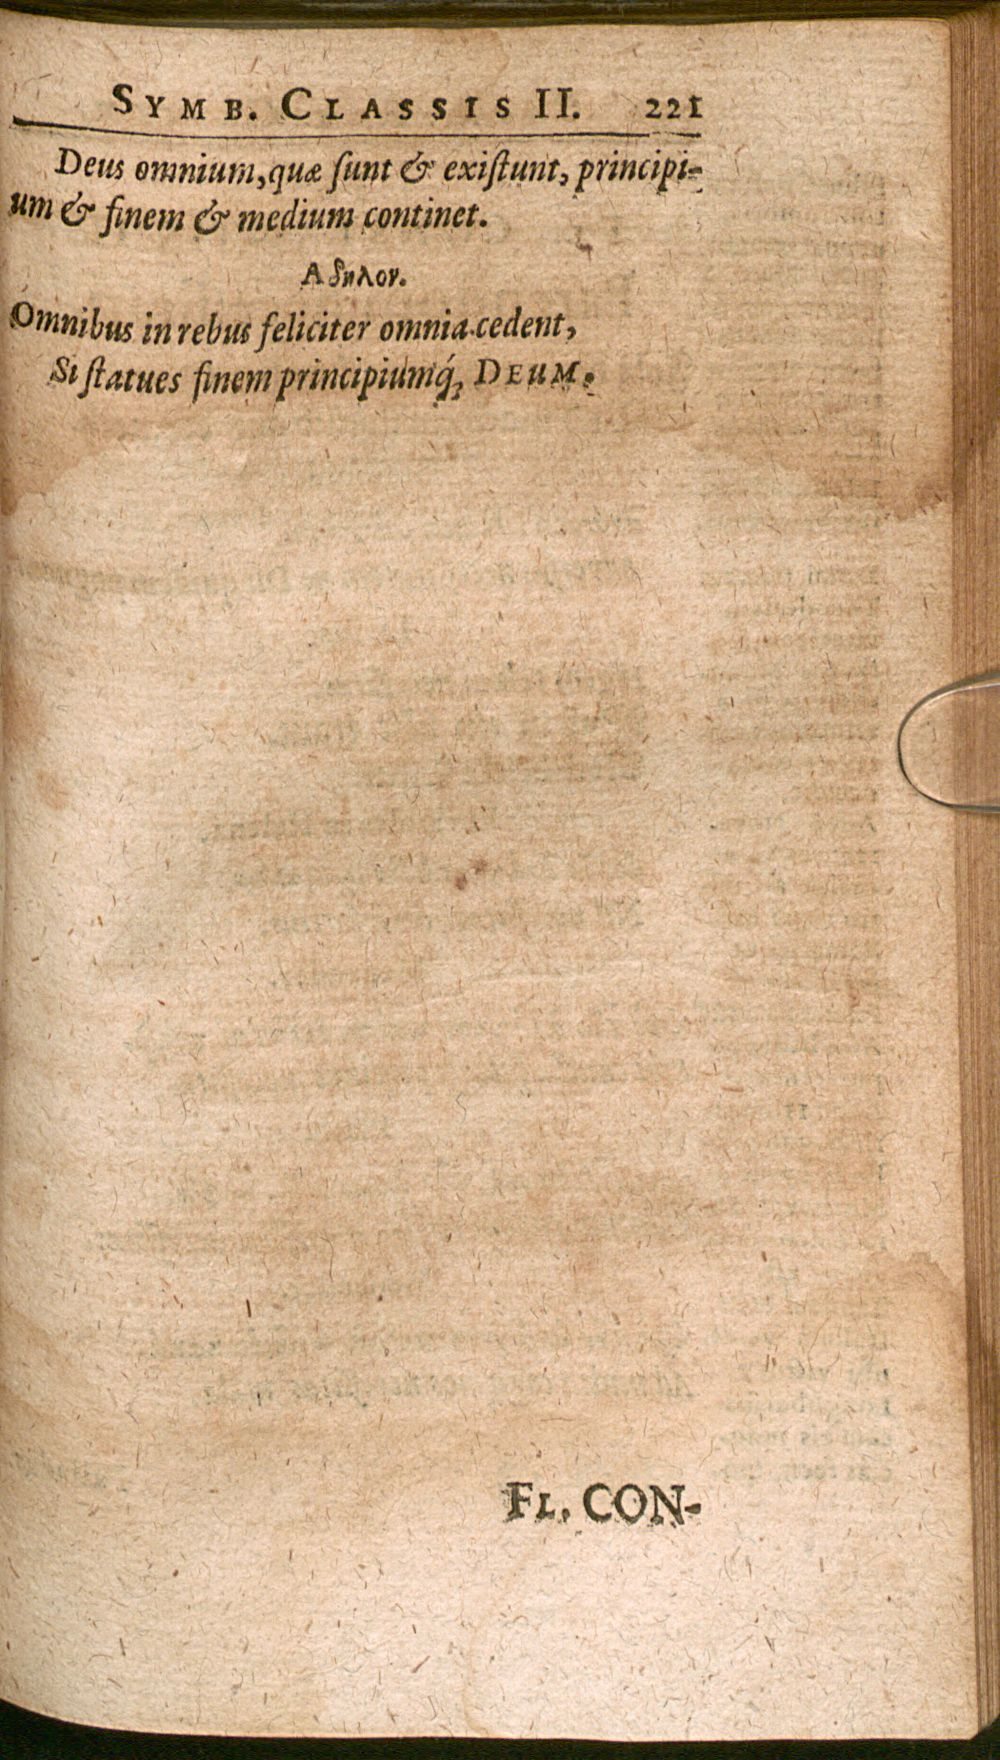 SYMB. CLASSIS II. 221
Deus omnium, quæ ſunt & exiſtunt, principi-
um & finem & medium continet.
Αδηλον.
Omnibus in rebus feliciter omnia cedent,
Si ſtatues finem principiumq́, DEUM.
FL. CON-